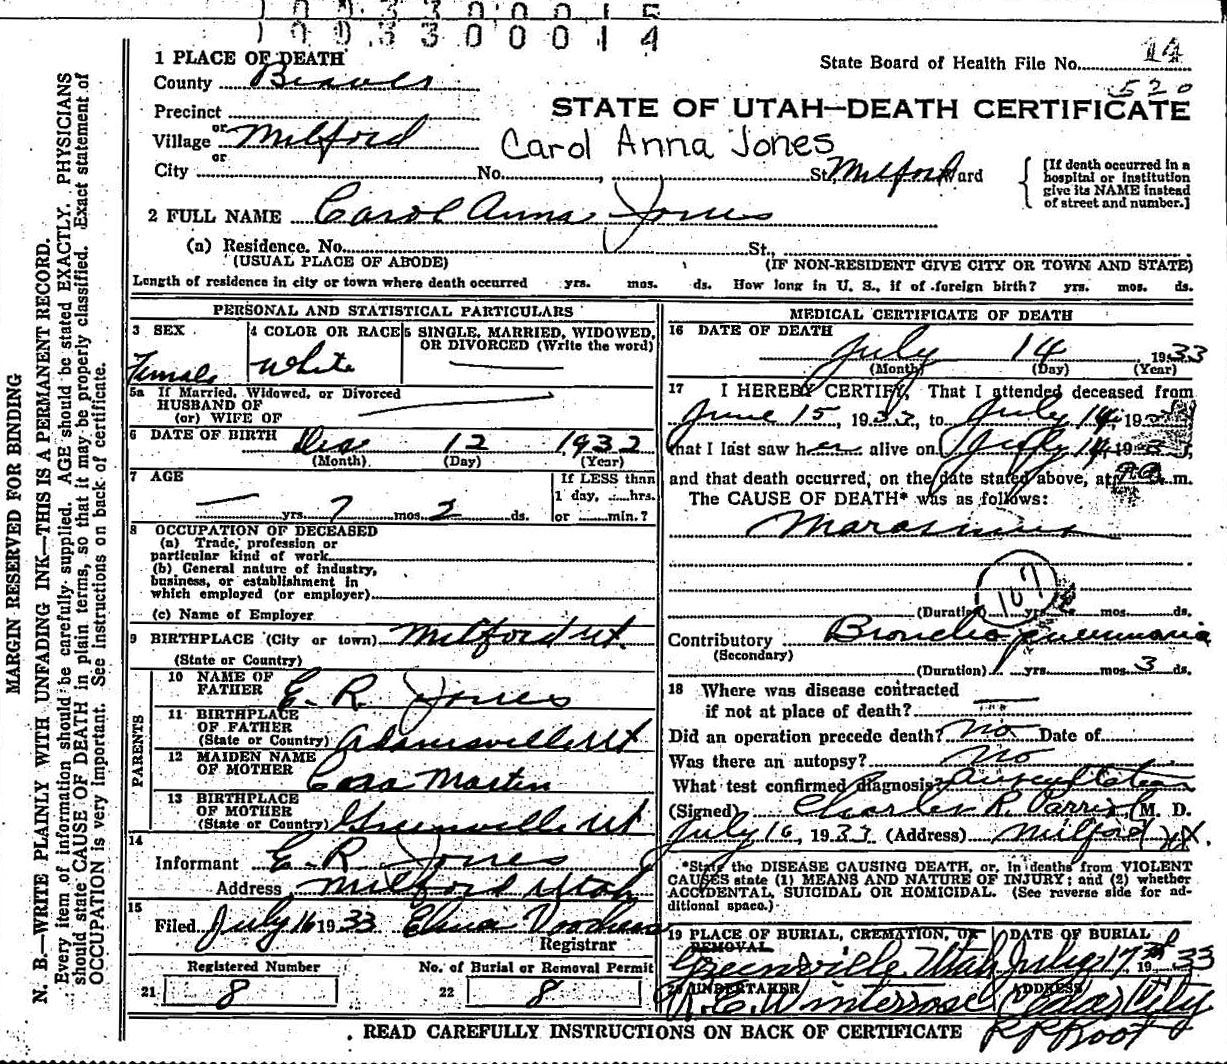 1 0 0 3 3 0 0 0 1 5
1 0 0 3 3 0 0 0 1 4
1 PLACE OF DEATH
State Board of Health File No. 14
County Beaver
520
Precinct
STATE OF UTAH—DEATH CERTIFICATE
or
Village Milford
Carol Anna Jones
or
City No. , St., Milford Ward
[If death occurred in a
hospital or institution
give its NAME instead
of street and number.]
2 FULL NAME Carol Anna Jones
(a) Residence. No. St.,
(USUAL PLACE OF ABODE) (IF NON-RESIDENT GIVE CITY OR TOWN AND STATE)
Length of residence in city or town where death occurred yrs. mos. ds. How long in U. S., if of foreign birth? yrs. mos. ds.
PERSONAL AND STATISTICAL PARTICULARS
3 SEX
Female
4 COLOR OR RACE
White
5 SINGLE, MARRIED, WIDOWED,
OR DIVORCED (Write the word)
5a If Married, Widowed, or Divorced
HUSBAND OF
(or) WIFE OF
6 DATE OF BIRTH Dec 12 1932
(Month) (Day) (Year)
7 AGE
— yrs. 7 mos. 2 ds.
If LESS than
1 day, ....hrs.
or ......min.?
8 OCCUPATION OF DECEASED
(a) Trade, profession or
particular kind of work
(b) General nature of industry,
business, or establishment in
which employed (or employer)
(c) Name of Employer
9 BIRTHPLACE (City or town) Milford Ut.
(State or Country)
PARENTS
10 NAME OF
FATHER E. R. Jones
11 BIRTHPLACE
OF FATHER
(State or Country) Adamsville Ut
12 MAIDEN NAME
OF MOTHER Cora Martin
13 BIRTHPLACE
OF MOTHER
(State or Country) Greenville Ut
14
Informant E. R. Jones
Address Milford Utah
15
Filed July 16 1933 Elma
Registrar
Registered Number
21 8
No. of Burial or Removal Permit
22 8
MEDICAL CERTIFICATE OF DEATH
16 DATE OF DEATH
July 14, 1933
(Month) (Day) (Year)
17 I HEREBY CERTIFY, That I attended deceased from
June 15, 1933, to July 14, 19
that I last saw her alive on July 14, 19
and that death occurred, on the date stated above, at m.
The CAUSE OF DEATH* was as follows:
Marasmus
107
(Duration) yrs. mos. ds.
Contributory Broncho pneumonia
(Secondary)
(Duration) yrs. mos. 3 ds.
18 Where was disease contracted
if not at place of death?
Did an operation precede death? no Date of
Was there an autopsy? no
What test confirmed diagnosis? Auscultation
(Signed) Charles R. Parrish M. D.
July 16, 1933 (Address) Milford Ut.
*State the DISEASE CAUSING DEATH, or, in deaths from VIOLENT
CAUSES state (1) MEANS AND NATURE OF INJURY; and (2) whether
ACCIDENTAL SUICIDAL OR HOMICIDAL. (See reverse side for ad-
ditional space.)
19 PLACE OF BURIAL, CREMATION, OR
REMOVAL
Greenville Utah
DATE OF BURIAL
July 17th 1933
20 UNDERTAKER
Winterrose
ADDRESS
Cedar City
R R Root
READ CAREFULLY INSTRUCTIONS ON BACK OF CERTIFICATE
MARGIN RESERVED FOR BINDING
N. B.—WRITE PLAINLY WITH UNFADING INK—THIS IS A PERMANENT RECORD.
Every item of information should be carefully supplied. AGE should be stated EXACTLY. PHYSICIANS
should state CAUSE OF DEATH in plain terms, so that it may be properly classified. Exact statement of
OCCUPATION is very important. See instructions on back of certificate.